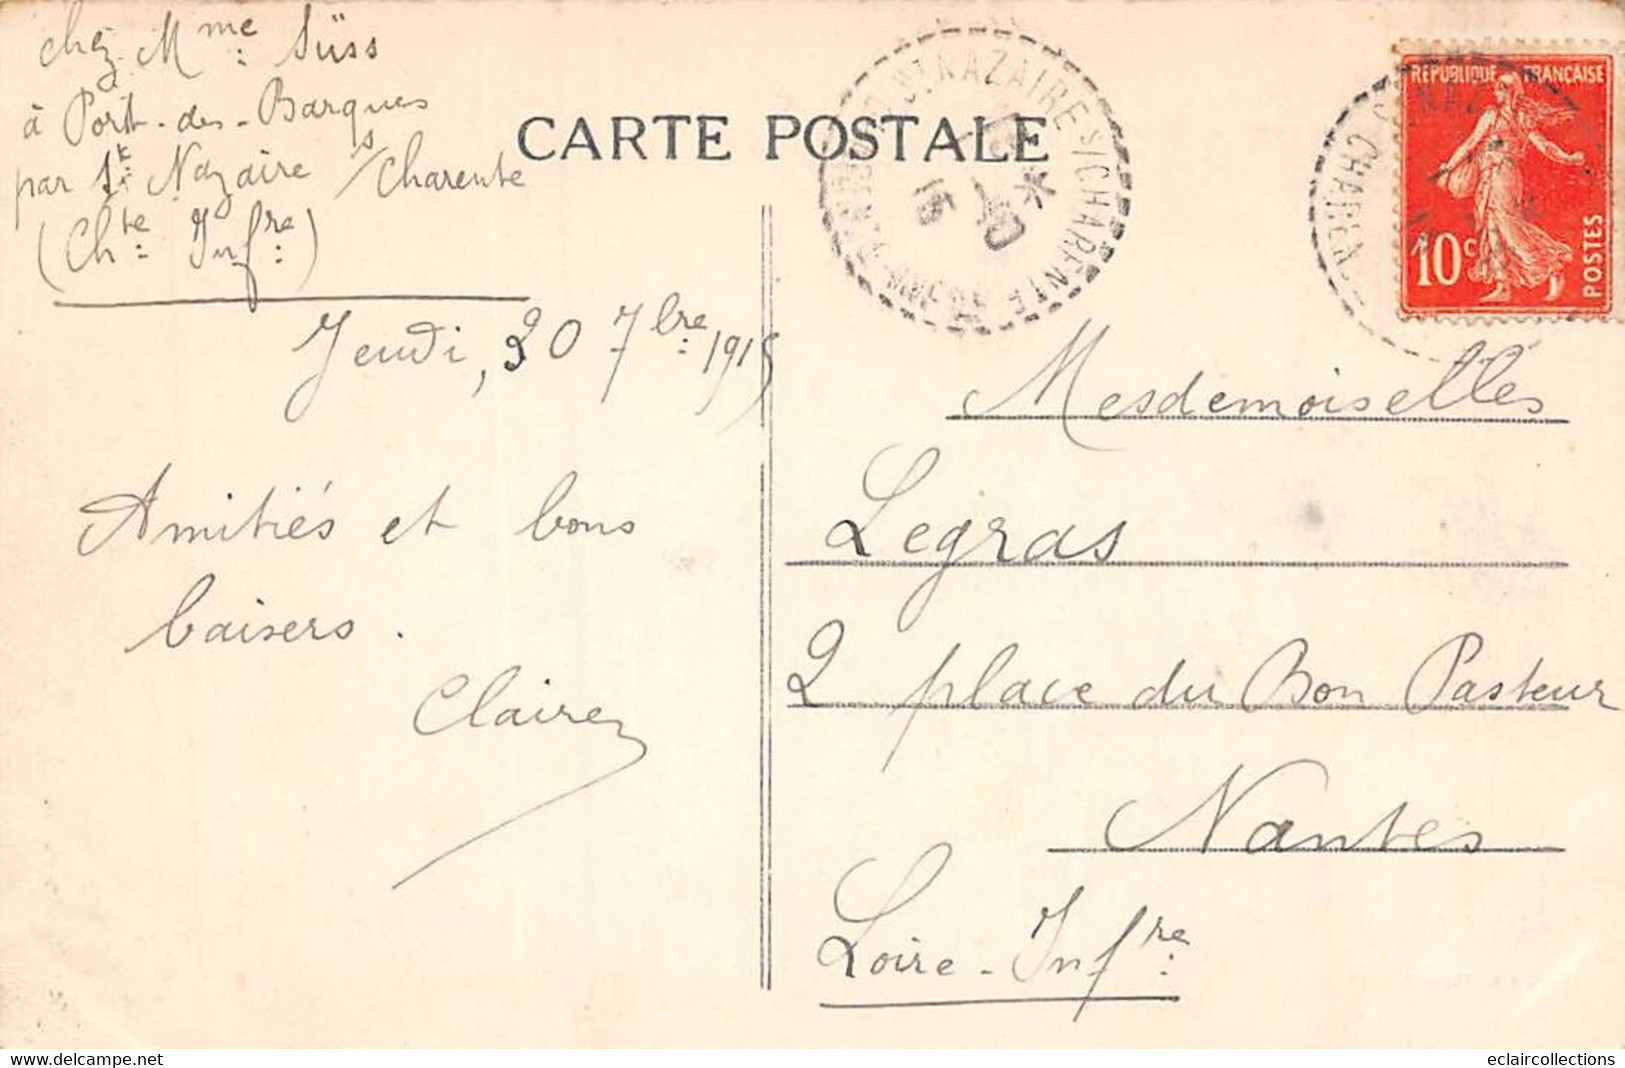 chez Mme: Süss
à Port-des-Barques
par St Nazaire s/Charente
(Chte: Infre:)
Jeudi, 30 7bre: 1915
Amitiés et bons
baisers.
Claire
CARTE POSTALE
ST NAZAIRE S/CHARENTE
1 -10
15
REPUBLIQUE FRANÇAISE
10c
POSTES
Mesdemoiselles
Legras
2 place du Bon Pasteur
Nantes
Loire-Infre:
eclaircollections